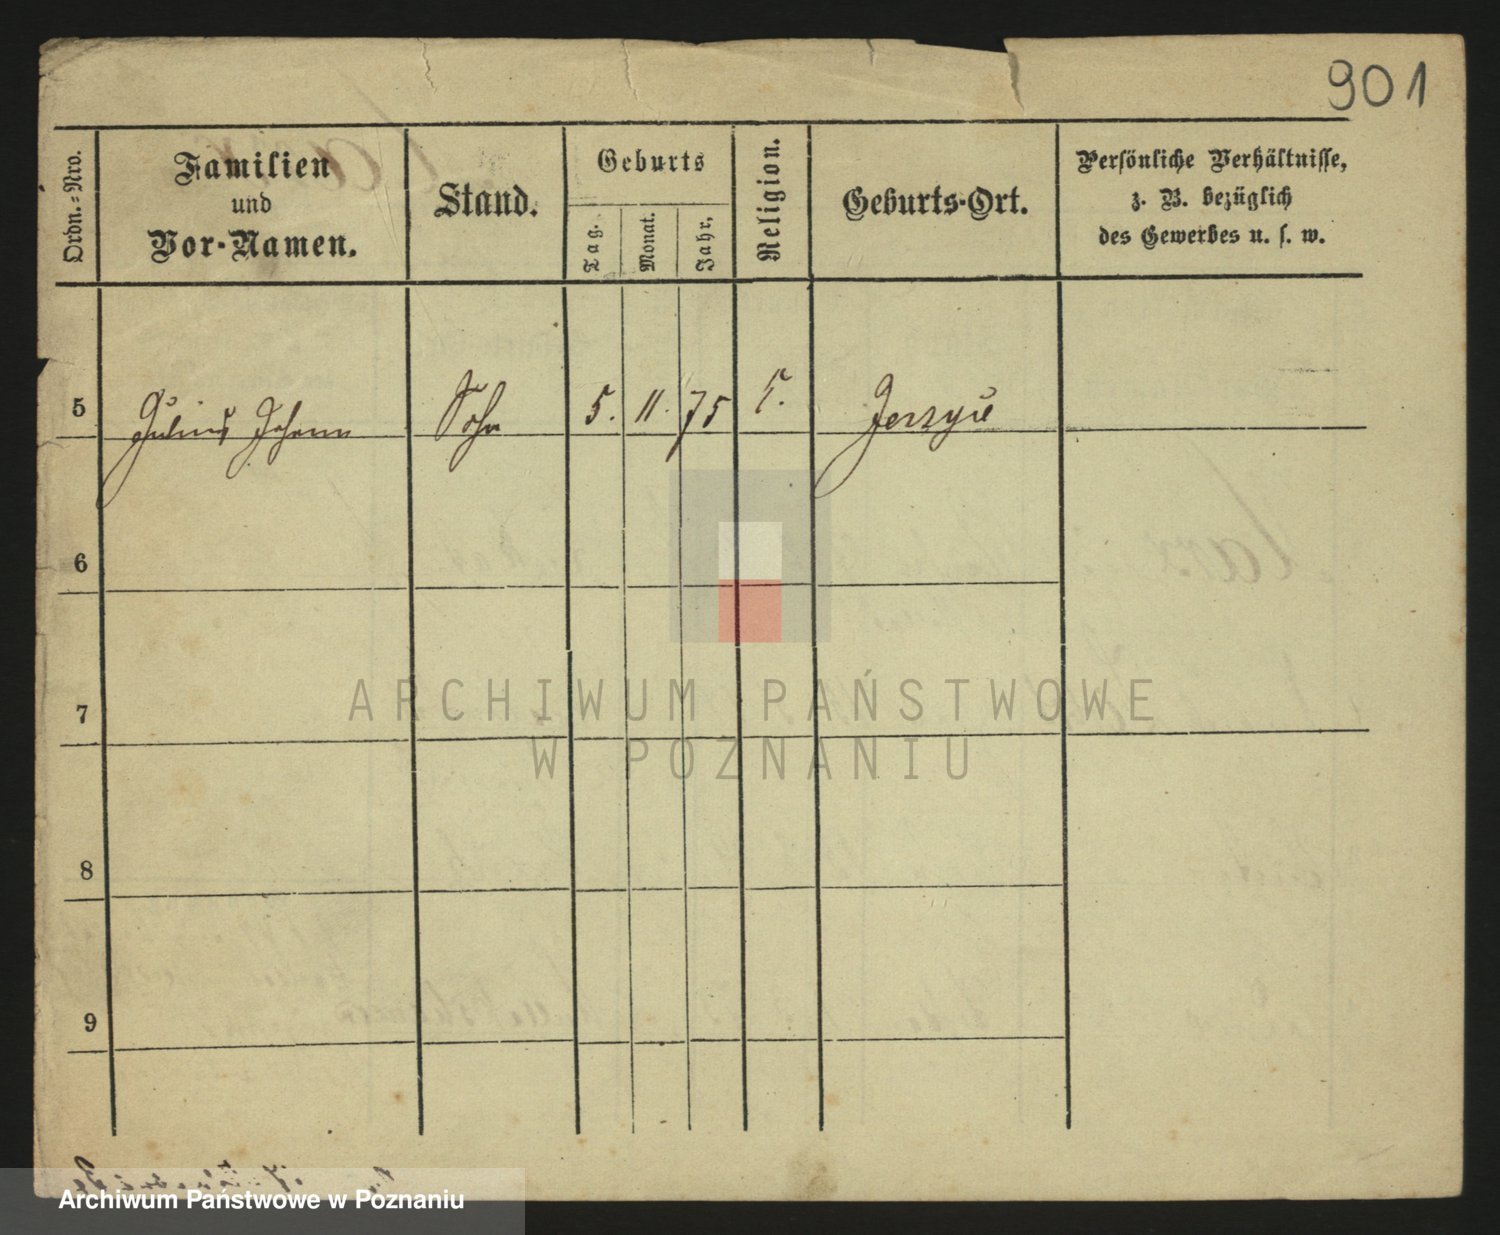 901
Ordn.-Nro.
Familien
und
Vor-Namen.
Stand.
Geburts
Tag.
Monat.
Jahr.
Religion.
Geburts-Ort.
Persönliche Verhältnisse,
z. B. bezüglich
des Gewerbes u. s. w.
5 Julius Johann Sohn 5. 11. 75
6
7
8
9
ARCHIWUM PAŃSTWOWE
W POZNANIU
Archiwum Państwowe w Poznaniu